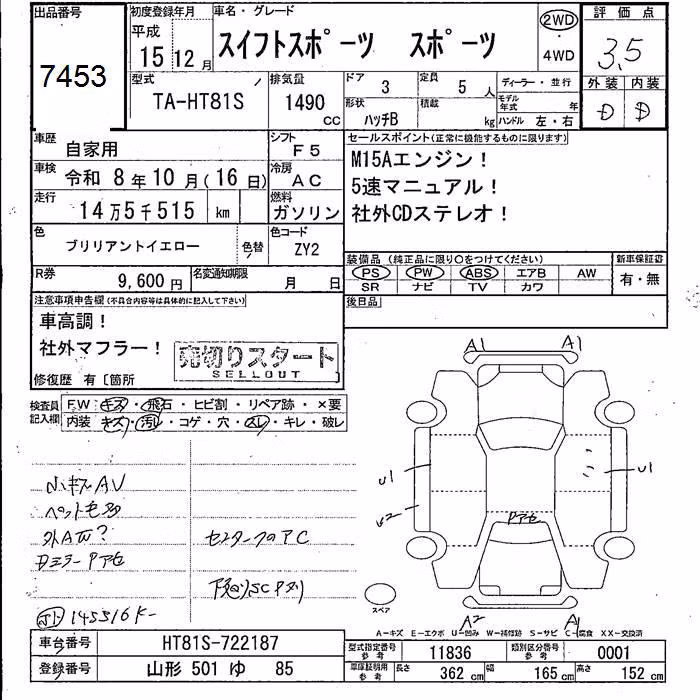 出品番号
7453
初度登録年月
平成
15 12 月
車名・グレード
スイフトスポーツ スポーツ
2WD
・
4WD
評価点
3.5
外装 内装
D D
型式
TA-HT81S
排気量
1490
cc
ドア
3
定員
5 人
形状
ハッチB
積載
kg
ディーラー・並行
モデル年式 年
ハンドル 左・右
車歴
自家用
シフト
F5
車検
令和 8年 10月(16日)
冷房
AC
走行
14万5千515 km
燃料
ガソリン
色
ブリリアントイエロー
色替
色コード
ZY2
R券
9,600 円
名変通知期限
月 日
セールスポイント(正常に機能するものに限ります)
M15Aエンジン！
5速マニュアル！
社外CDステレオ！
装備品 (純正品に限り○をつけてください)
PS PW ABS エアB AW
SR ナビ TV カワ
新車保証書
有・無
後日品
注意事項申告欄(不具合内容等は具体的に記入して下さい)
車高調！
社外マフラー！
売切りスタート
SELLOUT
修復歴 有〔箇所
検査員記入欄
FW キズ・飛石・ヒビ割・リペア跡・×要
内装 キズ・汚レ・コゲ・穴・スレ・キレ・破レ
小キズAV
ペット毛多
外AW?
DミラーPアセ
センターフロアC
下廻りSCPスリ
145516K-
A1 A1
U1
U2
U1
Pアセ
A2 A1
スペア
A－キズ E－エクボ U－凹み W－補修跡 S－サビ C－腐食 XX－交換済
車台番号
HT81S-722187
登録番号
山形 501 ゆ 85
型式指定番号
参考
11836
類別区分番号
参考
0001
車庫証明用
参考
長さ 362 cm 幅 165 cm 高さ 152 cm